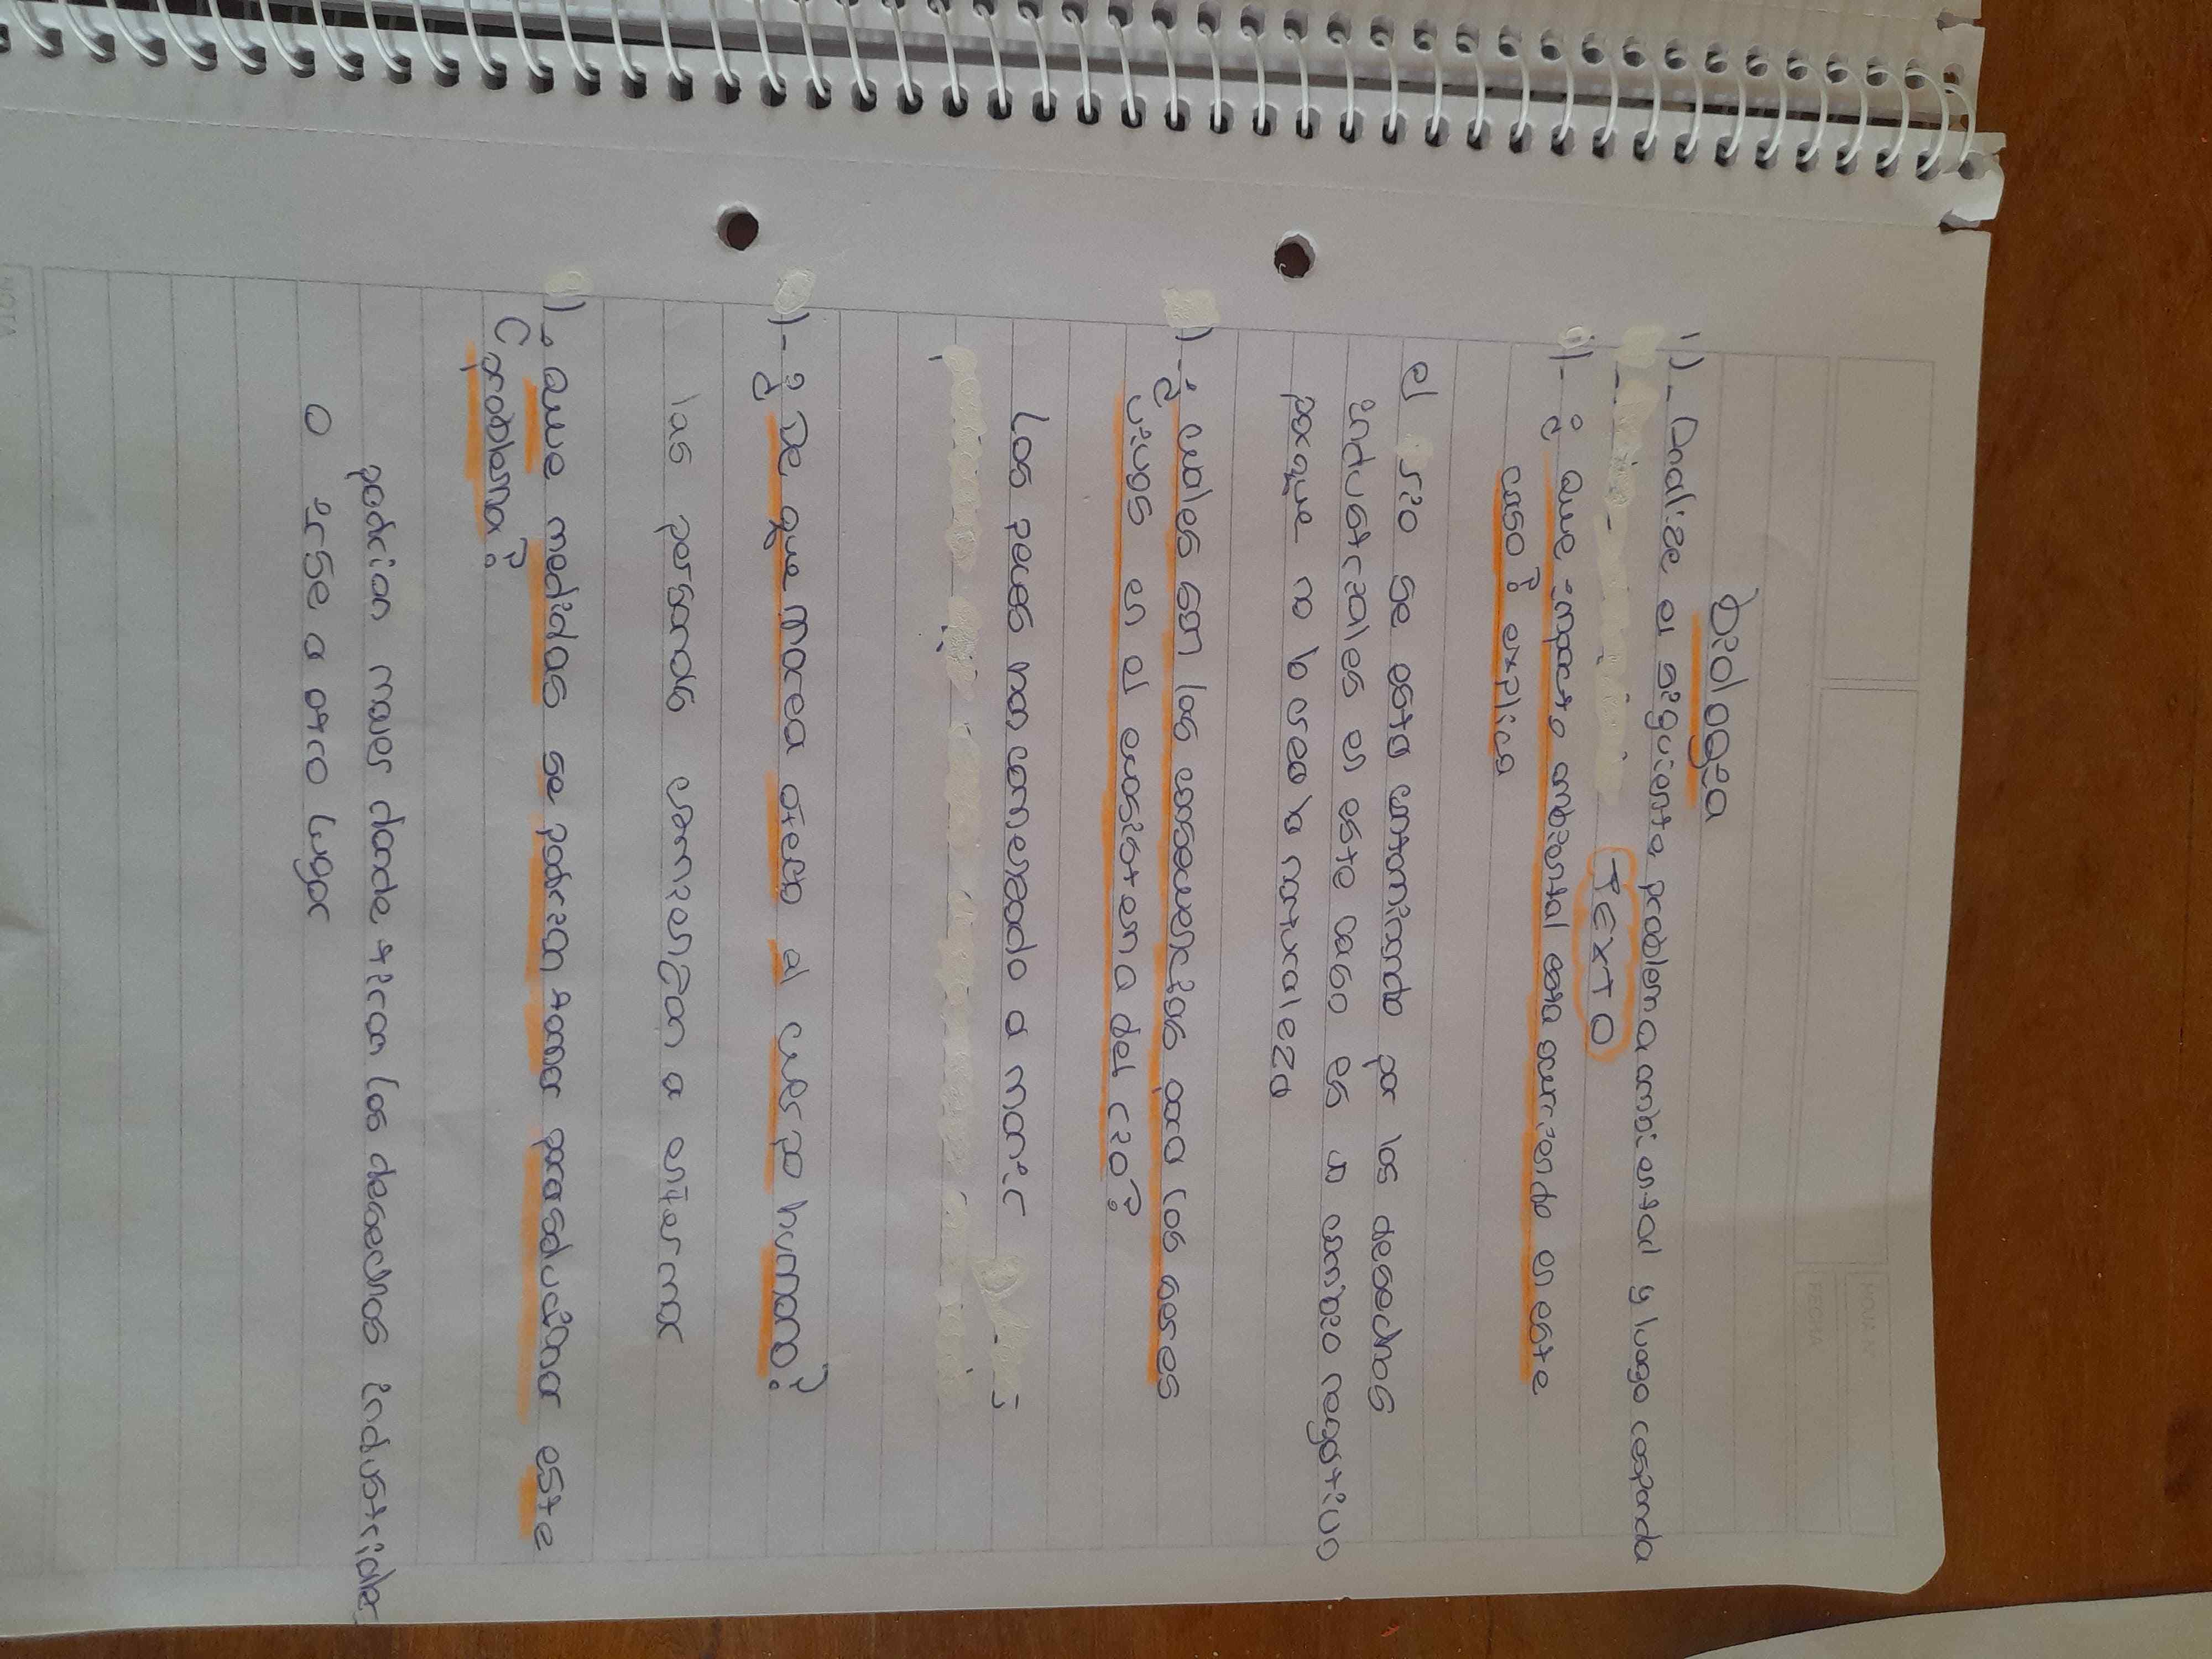 biología
1)_ Analize el siguiente problema ambiental y luego responda
TEXTO
)- ¿ que impacto ambiental esta ocurriendo en este
caso? explica
el rio se esta contaminando por los desechos
industriales en este caso es un cambio negativo
porque no lo creo la naturaleza
)-¿ cuales son las consecuencias para los seres
vivos en el ecosistema del rio?
Los peces han comenzado a morir
)-¿ De que manera afecta al cuerpo humano?
las personas comienzan a enfermar
)_ que medidas se podrian tomar para solucionar este
problema?
podrian mover donde tiran los desechos industriales
O irse a otro lugar